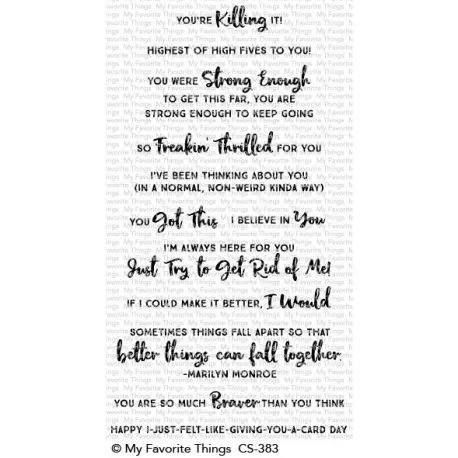 YOU'RE Killing IT!
HIGHEST OF HIGH FIVES TO YOU!
YOU WERE Strong Enough
TO GET THIS FAR, YOU ARE
STRONG ENOUGH TO KEEP GOING
SO Freakin' Thrilled FOR YOU
I'VE BEEN THINKING ABOUT YOU
(IN A NORMAL, NON-WEIRD KINDA WAY)
YOU Got This I BELIEVE IN You
I'M ALWAYS HERE FOR YOU
Just Try to Get Rid of Me!
IF I COULD MAKE IT BETTER, I Would
SOMETIMES THINGS FALL APART SO THAT
better things can fall together.
-MARILYN MONROE
YOU ARE SO MUCH Braver THAN YOU THINK
HAPPY I-JUST-FELT-LIKE-GIVING-YOU-A-CARD DAY
© My Favorite Things CS-383